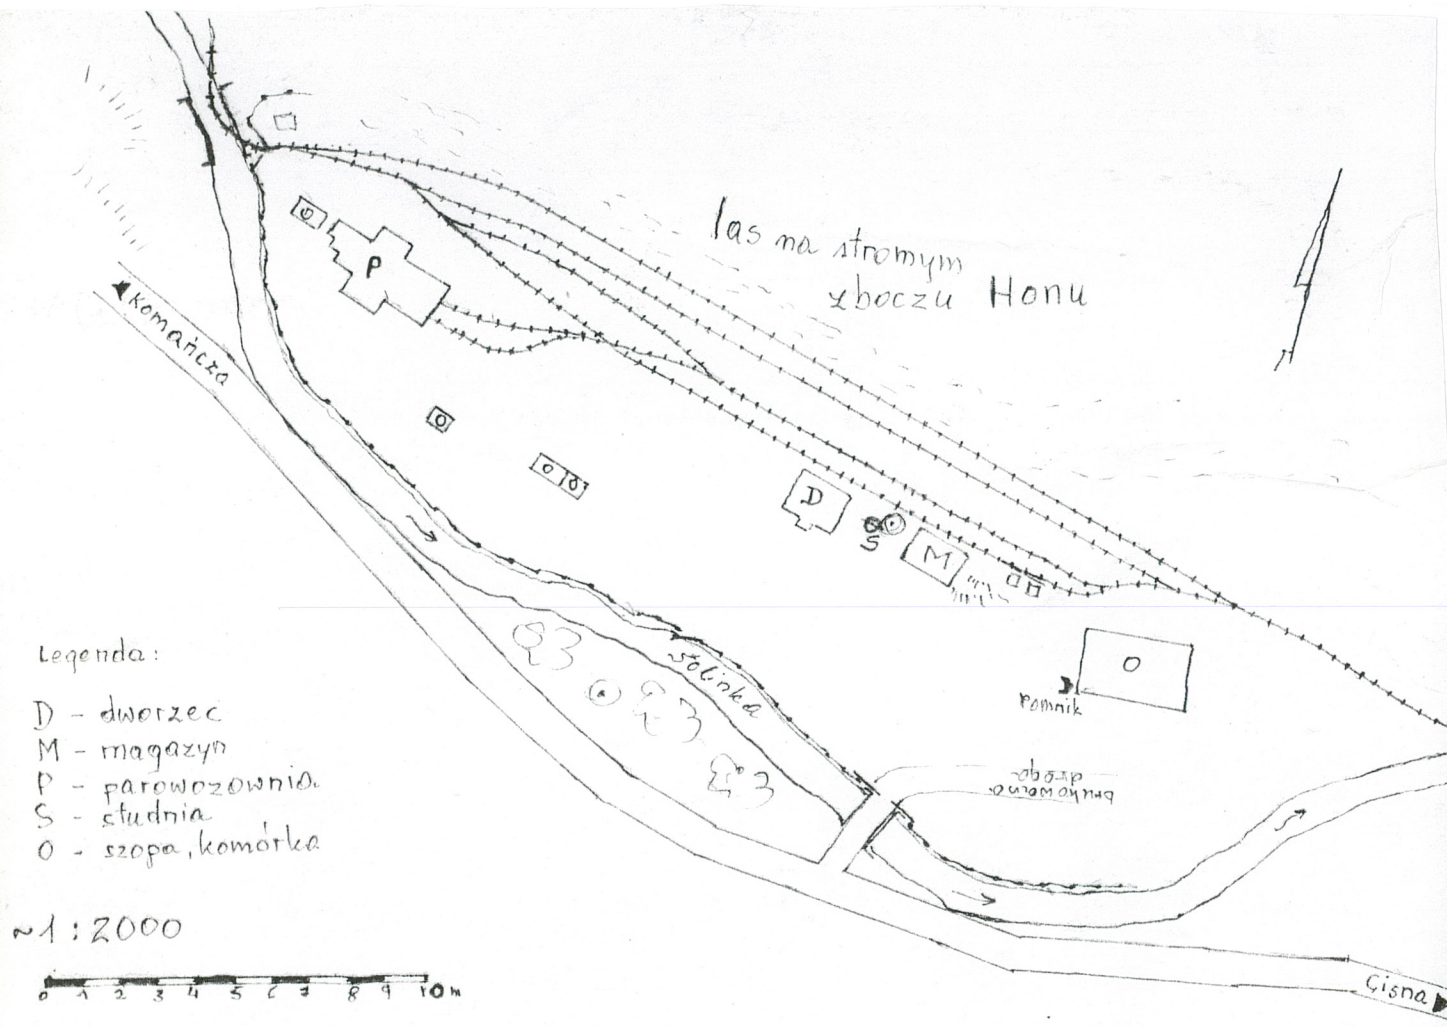 las na stromym
zboczu Honu
Komańcza
O
P
O
O
O
D
S
M
O
Pomnik
Solinka
brukowana
droga
Legenda:
D - dworzec
M - magazyn
P - parowozownia
S - studnia
O - szopa, komórka
~1:2000
0 1 2 3 4 5 6 7 8 9 10 m
Cisna